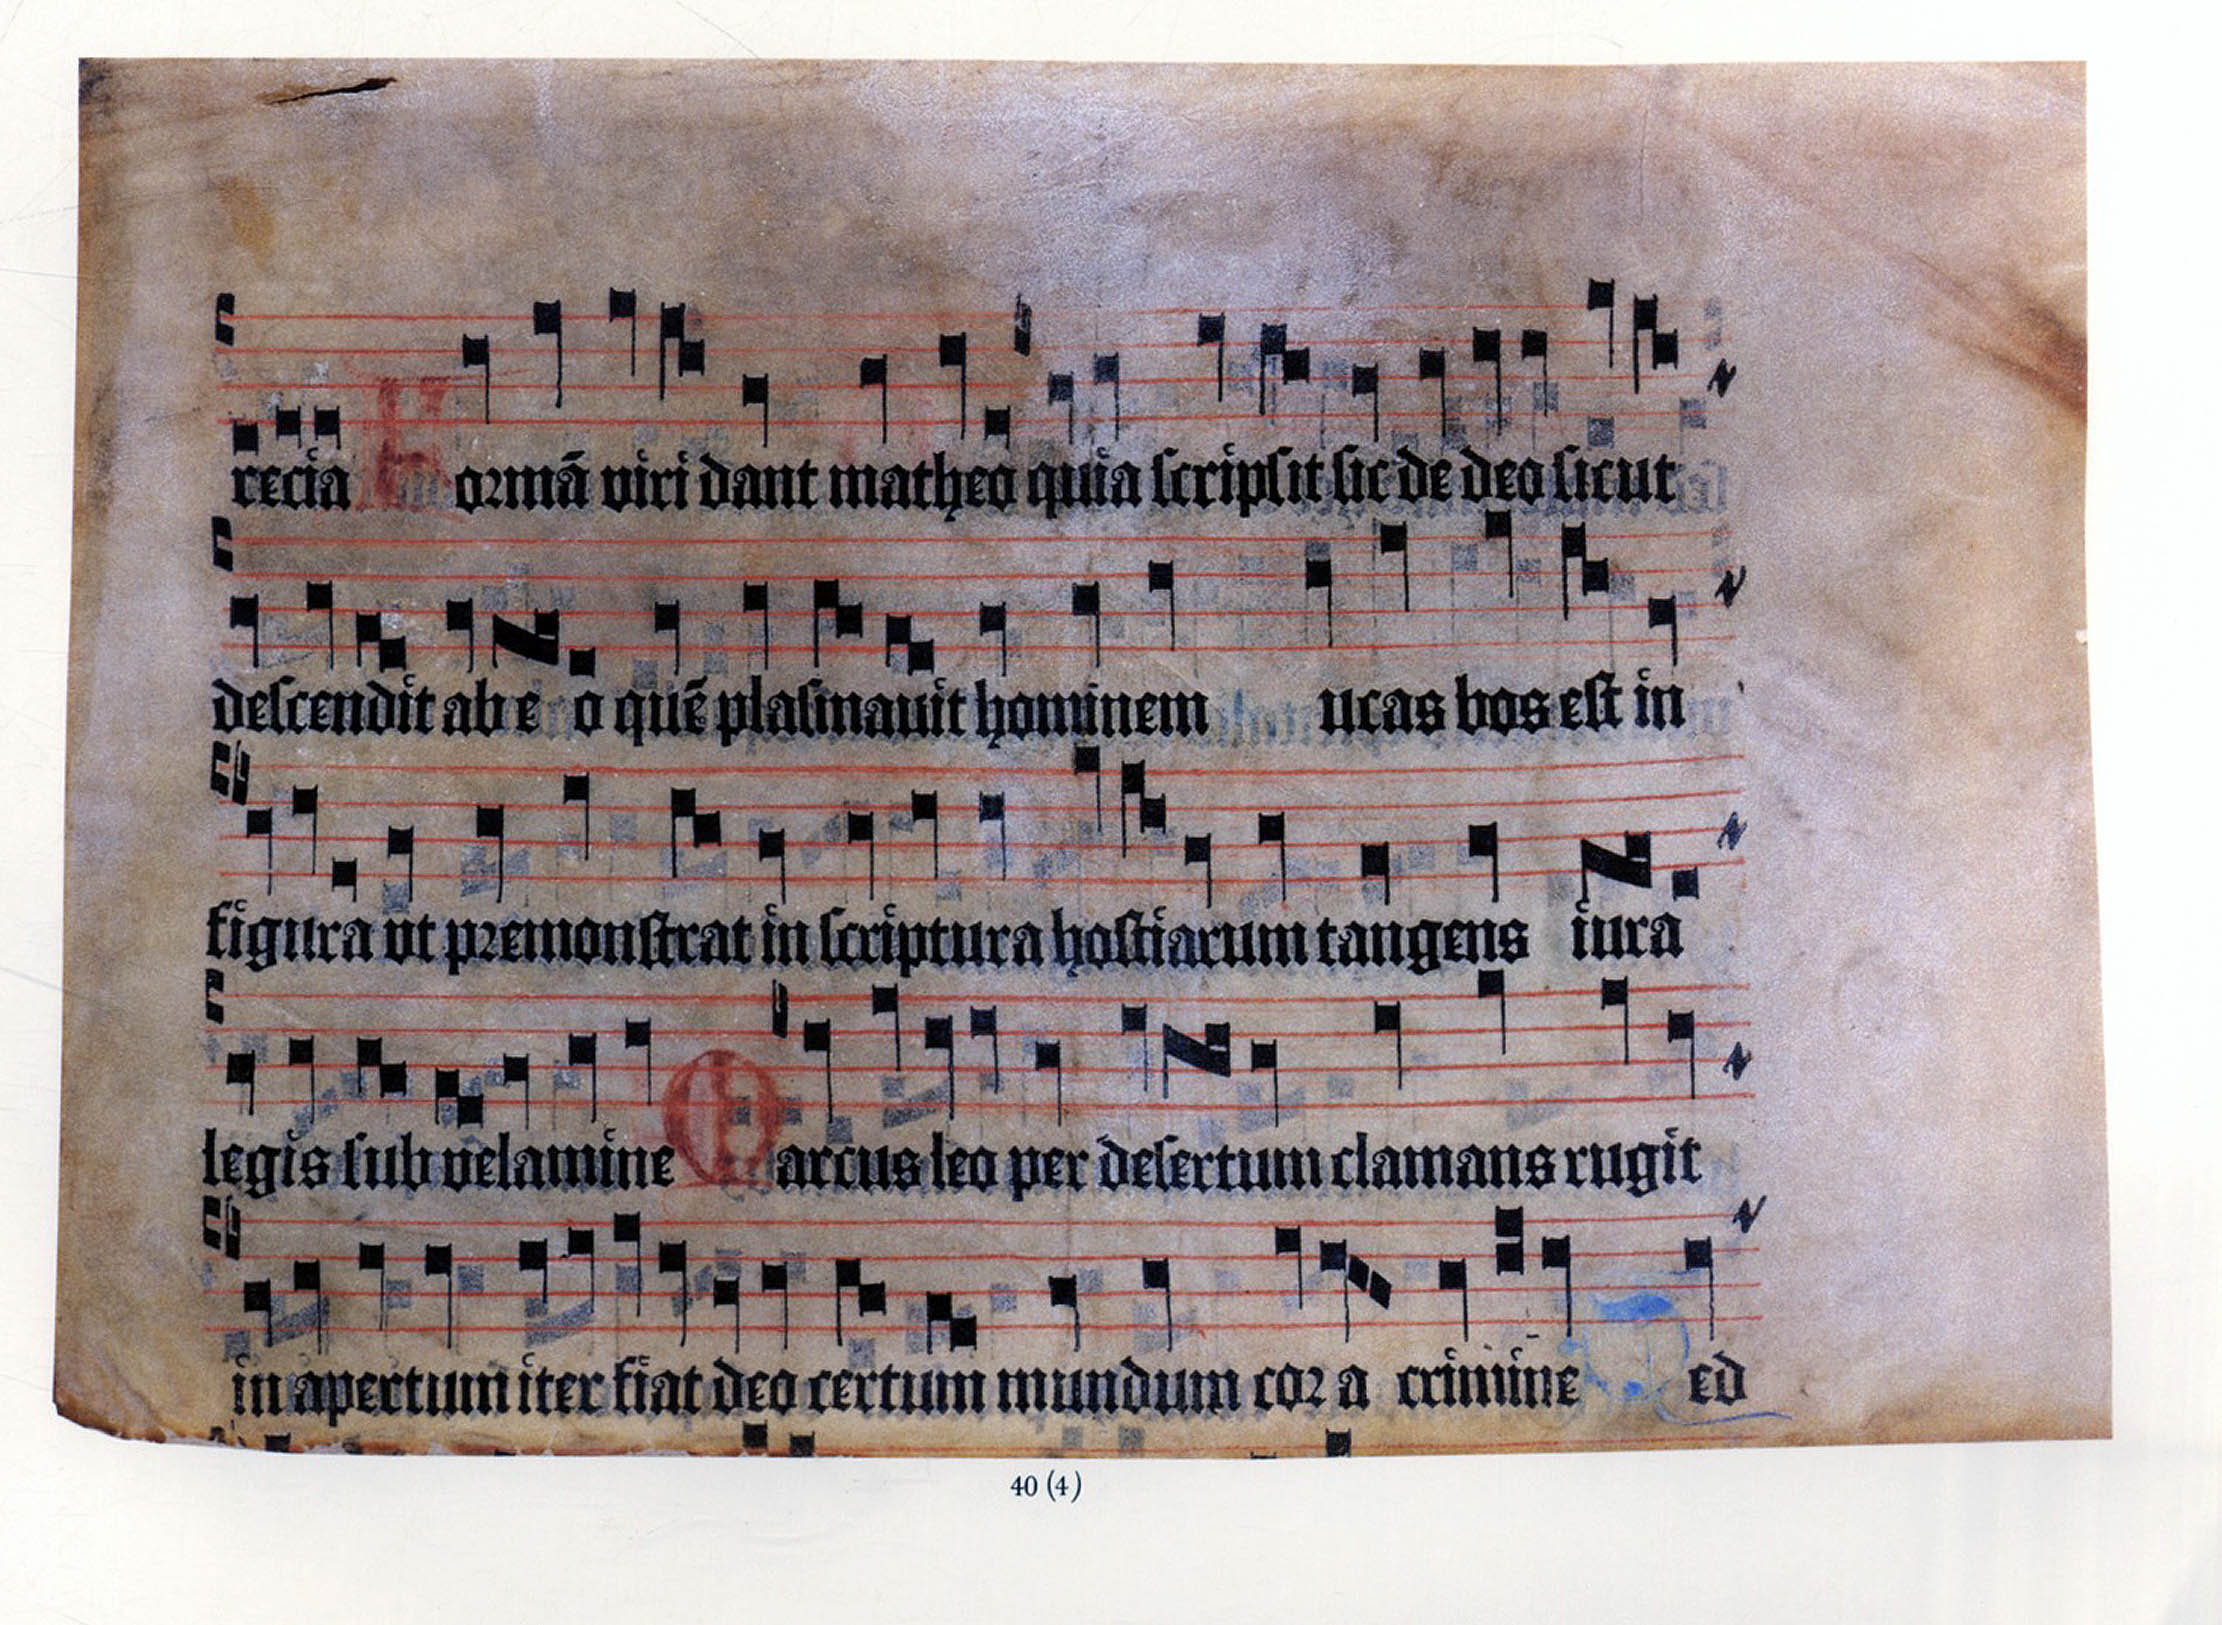 recia Formā viri dant matheo quia scripsit sic de deo sicut
descendit ab e o quē plasmauit hominem ucas bos est in
figura vt premonstrat in scriptura hostiarum tangens iura
legis sub velamine Marcus leo per desertum clamans rugit
in apertum iter fiat deo certum mundum cor a crimine Sed
40 (4)